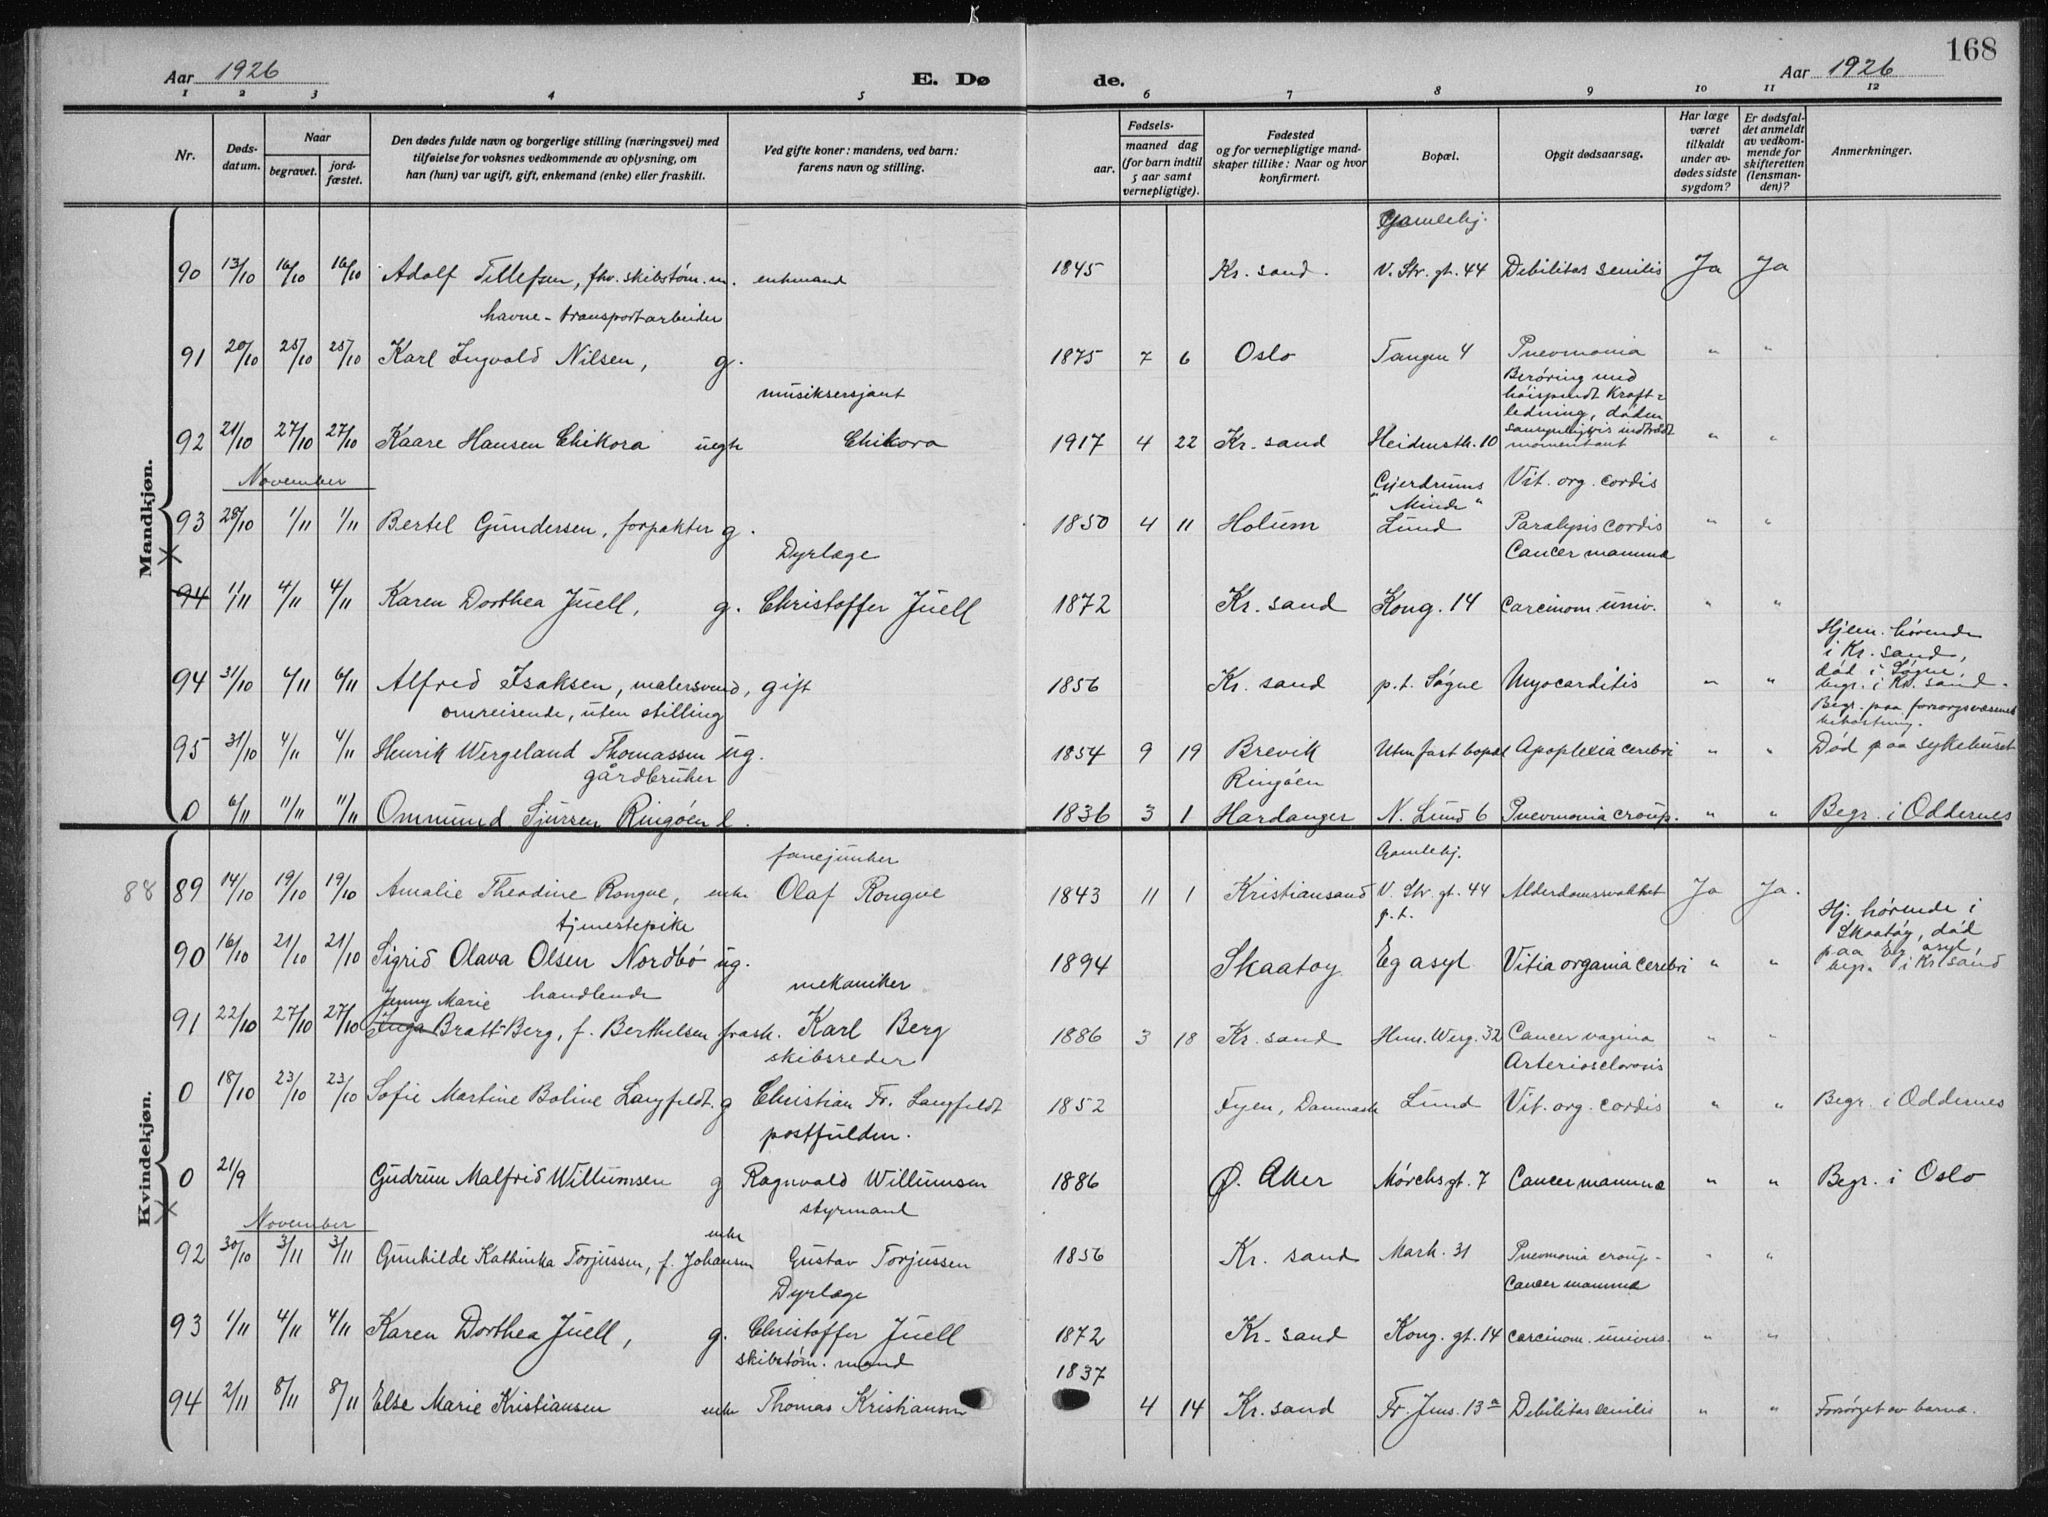 168
Aar 1926 E. Døde. Aar 1926
1 2 3 4 5 6 7 8 9 10 11 12
Nr. Døds-datum. Naar begravet. jord-fæstet. Den dødes fulde navn og borgerlige stilling (næringsvei) med tilføielse for voksnes vedkommende av oplysning, om han (hun) var ugift, gift, enkemand (enke) eller fraskilt. Ved gifte koner: mandens, ved barn: farens navn og stilling. Fødsels- aar. maaned dag (for barn indtil 5 aar samt vernepligtige). Fødested og for vernepligtige mandskaper tillike: Naar og hvor konfirmert. Bopæl. Opgit dødsaarsag. Har læge været tilkaldt under avdødes sidste sygdom? Er dødsfaldet anmeldt av vedkommende for skifteretten (lensmanden)? Anmerkninger.
Mandkjøn.
Gamlehj.
90 13/10 16/10 16/10 Adolf Tellefsen, fhv. skibstøm.m. enkemand 1845 Kr. sand. V. Str. gt. 44 Debilitas senilis Ja Ja
havne- transportarbeider
91 20/10 25/10 25/10 Karl Ingvald Nilsen, g. 1875 7 6 Oslo Tangen 4 Pneumonia " "
musiksersjant Berøring med høispendt Kraft-ledning, døden sannsynligvis indtrådt momentant
92 21/10 27/10 27/10 Kaare Hansen Chikora uegte Chikora 1917 4 22 Kr. sand Heidensth. 10 " "
November
Gjerdrums "Minde" Vit. org. cordis
93 28/10 1/11 1/11 Bertel Gundersen, forpakter g. 1850 4 11 Holum Lund Paralysis cordis " "
Dyrlæge Cancer mamma
94 1/11 4/11 4/11 Karen Dorthea Juell, g. Christoffer Juell 1872 Kr. sand Kong. 14 carcinom. univ. " "
Hjem.hørende i Kr. sand, død i Søgne, begr. i Kr. sand.
94 31/10 6/11 6/11 Alfred Isaksen, malersvend, gift 1856 Kr. sand p.t. Søgne Myocarditis " "
omreisende, uten stilling Begr. paa forsorgsvæsenets bekostning.
95 31/10 4/11 4/11 Henrik Wergeland Thomassen ug. 1854 9 19 Brevik Uten fast bopæl Apoplexia cerebri " " Død paa sykehuset
gårdbruker Ringøen
0 6/11 11/11 11/11 Ommund Sjursen Ringøen e. 1836 3 1 Hardanger N. Lund 6 Pneumonia croup. " " Begr. i Oddernes
Kvindekjøn.
fanejunker Gamlehj.
88 89 14/10 19/10 19/10 Amalie Theodine Rongve, enke Olaf Rongve 1843 11 1 Kristiansand V. Str. gt. 44 Alderdomssvakhet Ja Ja.
tjenestepike p.t. Hj. hørende i Skaatøy, død paa Eg asyl, begr. i Kr sand
90 16/10 21/10 21/10 Sigrid Olava Olsen Nordbø ug. 1894 Skaatøy Eg asyl Vitia organia cerebri " "
Jenny Marie handlende mekaniker
91 22/10 27/10 27/10 Inga Bratt-Berg, f. Berthelsen frask. Karl Berg 1886 3 18 Kr. sand Hen. Werg. 32 Cancer vagina " "
skibsreder Arteriosclerosis
0 18/10 23/10 23/10 Sofie Martine Boline Langfeldt. g Christian Fr. Langfeldt 1852 Fyen, Danmark Lund Vit. org. cordis " " Begr. i Oddernes
postfulden.
0 21/9 Gudrun Malfrid Willumsen g Ragnvald Willumsen 1886 Ø. Aker Mørchs gt. 7 Cancer mamma " " Begr. i Oslo
November styrmand
92 30/10 3/11 3/11 Gunhilde Kathinka Torjussen, f. Johansen enke Gustav Torjussen 1856 Kr. sand Mark. 31 Pneumonia croup. " "
Dyrlæge Cancer mamma
93 1/11 4/11 4/11 Karen Dorthea Juell, g. Christoffer Juell 1872 Kr. sand Kong. gt. 14 carcinom. univers. " "
skibstøm. mand 1837
94 2/11 8/11 8/11 Else Marie Kristiansen enke Thomas Kristiansen 4 14 Kr. sand Fr. Jens. 13a Debilitas senilis " " Forsørget av barna.